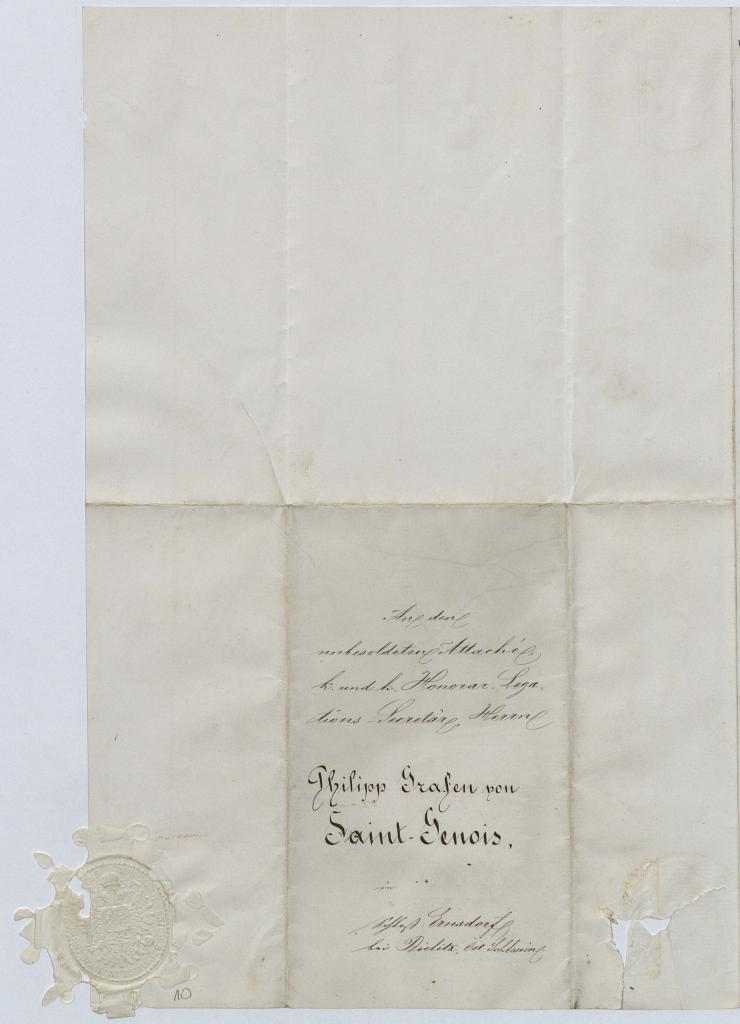 An den
unbesoldeten Attaché,
k. und k. Honorar-Lega-
tions-Secretär, Herrn
Philipp Grafen von
Saint-Genois,
in
Schloß Ernsdorf
bei Bielitz, Öst. Schlesien
10